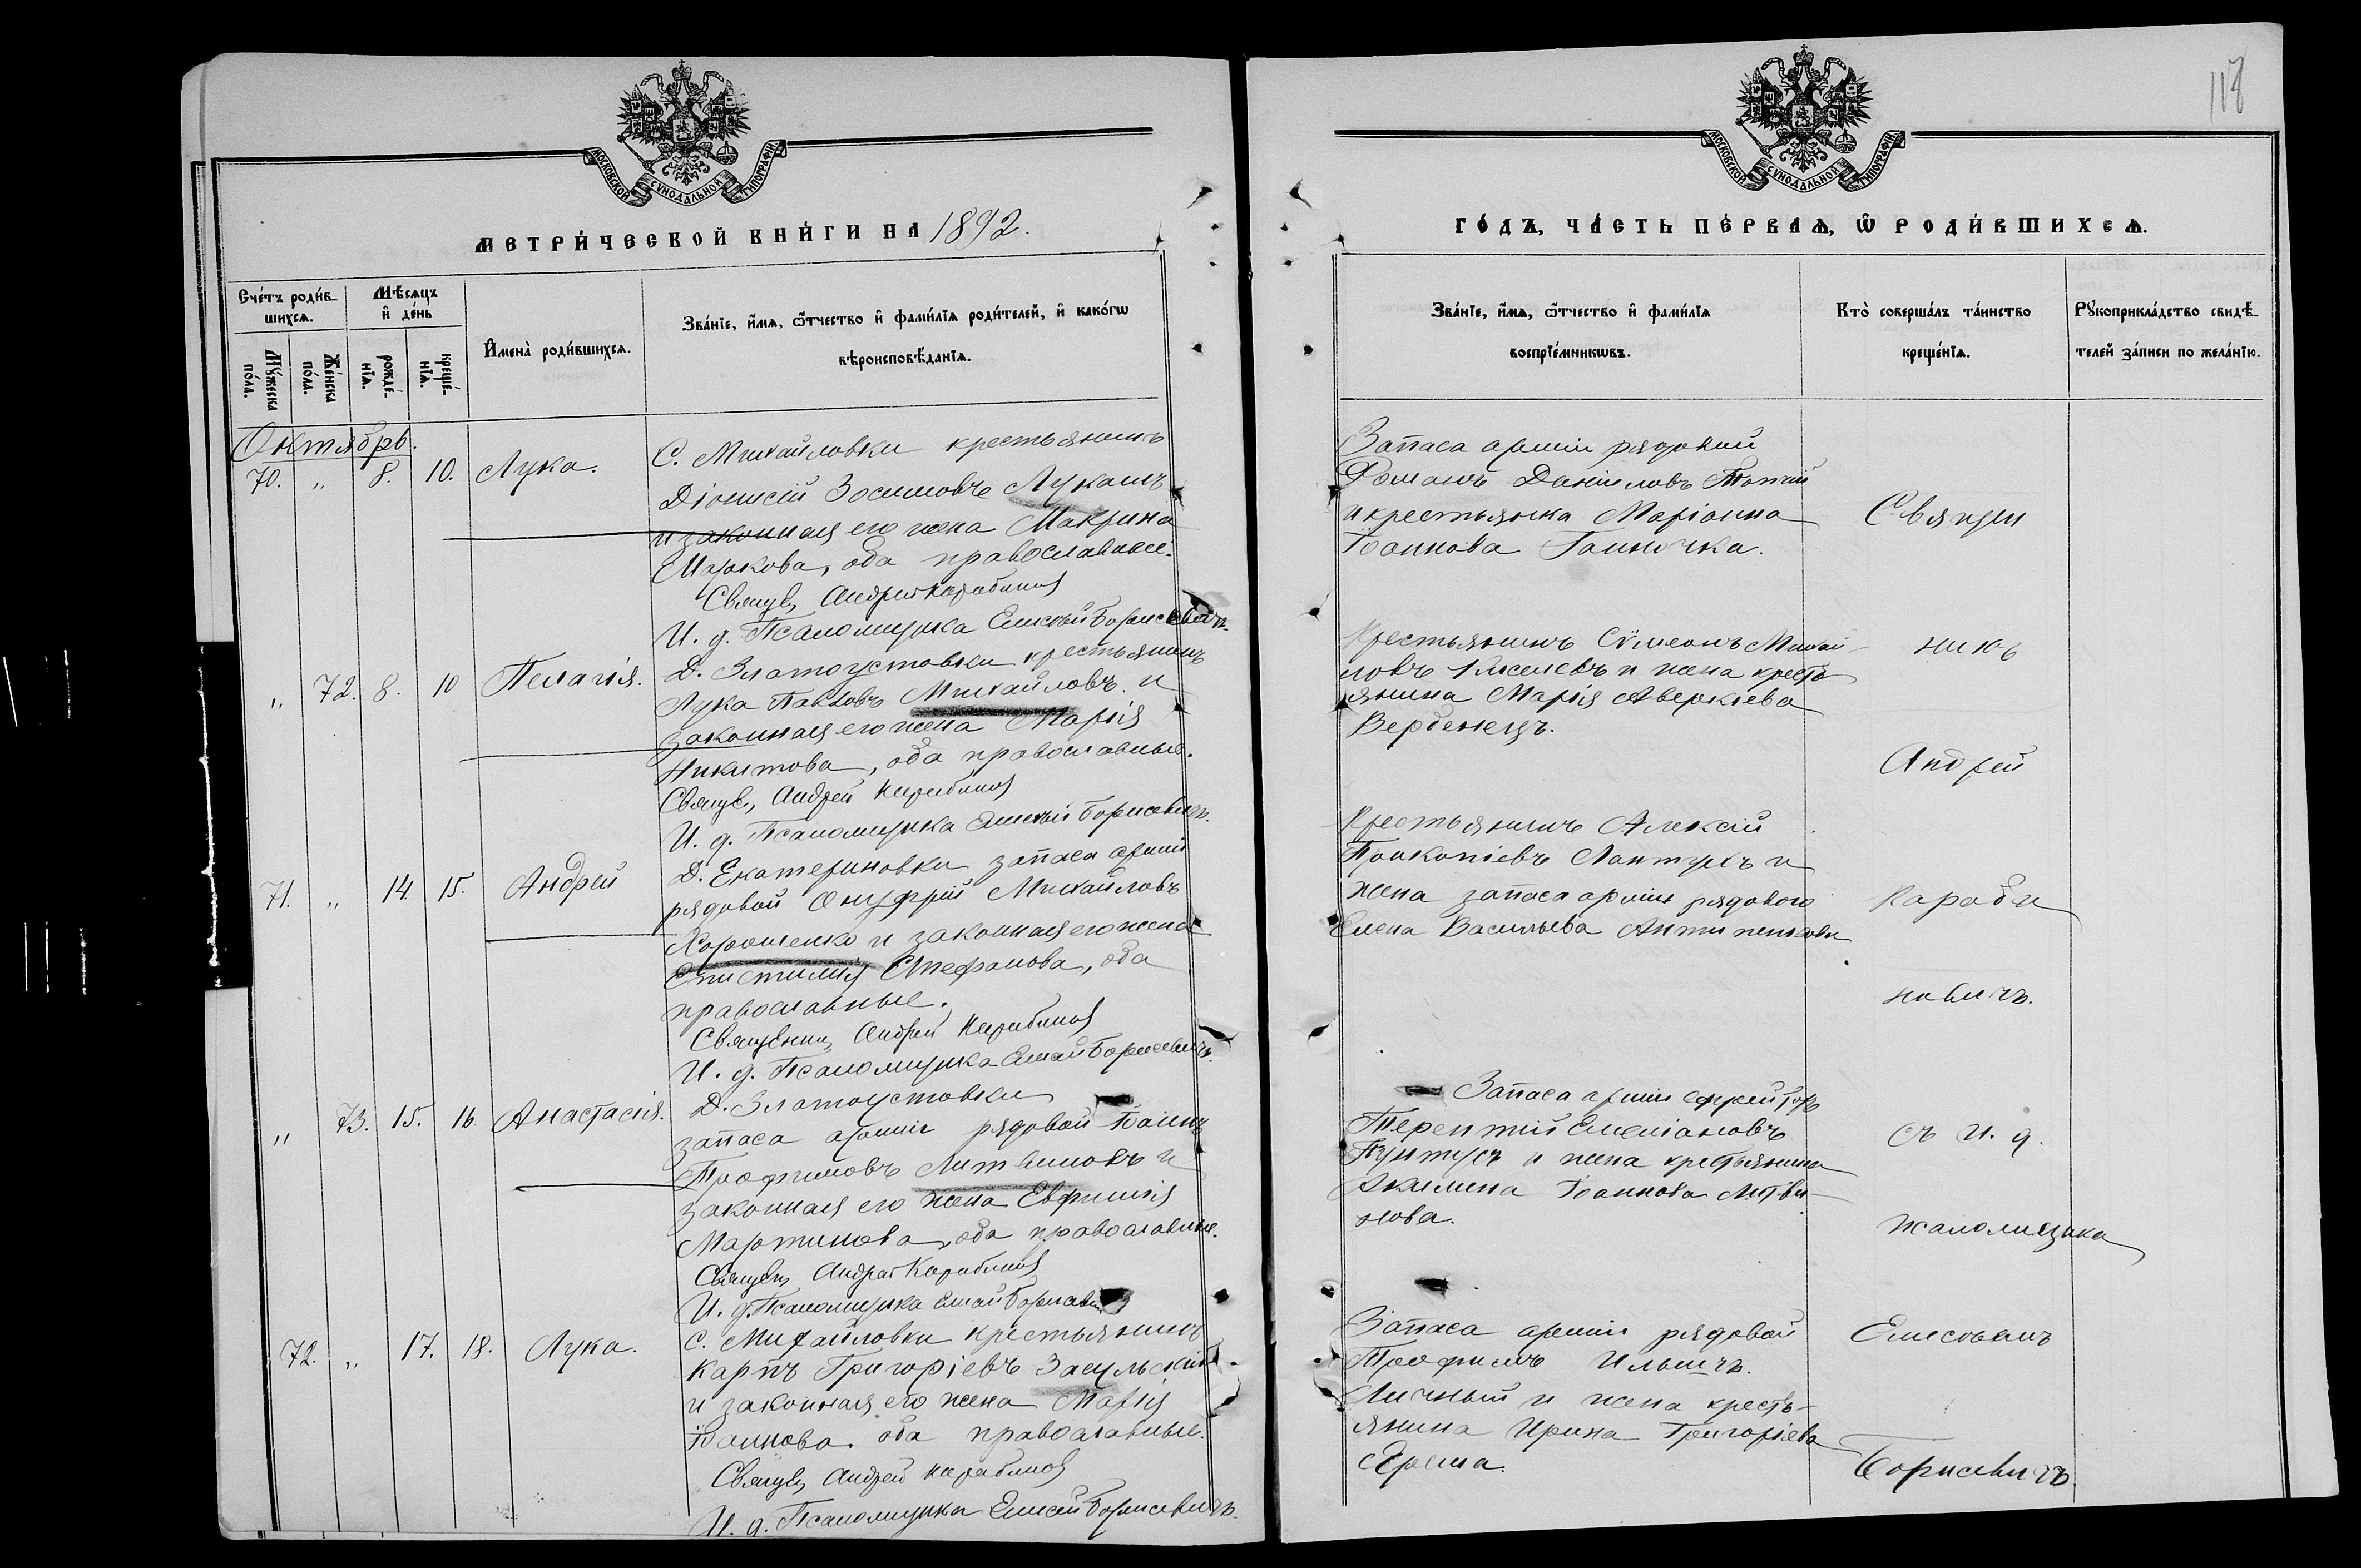 МОСКОВСКОЙ СѴНОДАЛЬНОЙ ТИПОГРАФІИ
МЕТРИ́ЧЕСКОЙ КНИ́ГИ НА 1892.
Сче́тъ роди́в-
шихсѧ.
Мѣ́сѧцъ
и҆ де́нь
Мꙋ́жеска
по́ла.
Же́нска
по́ла.
рожде́-
нїѧ.
креще́-
нїѧ.
И҆мена̀ роди́вшихсѧ.
Зва́нїе, и҆́мѧ, ѻ҆́тчество и҆ фами́лїѧ роди́телей, и҆ како́гѡ
вѣроисповѣ́данїѧ.
Октябрь.
70. " 8. 10. Лука.
С. Михайловки крестьянинъ
Діонисій Зосимовъ Лукашъ
и законная его жена Макрина
Маркова, оба православные.
Священ. Андрей Карабиновъ
И. д. Псаломщика Елисей Борисевичъ.
" 72. 8. 10 Пелагія.
Д. Златоустовки крестьянинъ
Лука Павловъ Михайловъ и
законная его жена Марія
Никитова, оба православные.
Священ. Андрей Карабиновъ
И. д. Псаломщика Елисей Борисевичъ.
71. " 14. 15. Андрей
Д. Екатериновки запаса арміи
рядовой Онуфрій Михайловъ
Хорошенко и законная его жена
Епистимія Стефанова, оба
православные.
Священник Андрей Карабинов
И. д. Псаломщика Елисей Борисевичъ.
" 73. 15. 16. Анастасія.
Д. Златоустовки
запаса арміи рядовой Іоаннъ
Трофимовъ Литвиновъ и
законная его жена Евфимія
Мартинова, оба православные.
Священ. Андрей Карабинов
И. д. Псаломщика Елисей Борисевичъ
72. " 17. 18. Лука.
С. Михайловки крестьянинъ
Карпъ Григоріевъ Засульскій
и законная его жена Марія
Іоаннова. оба православные.
Священ. Андрей Карабинов
И. д. Псаломщика Елисей Борисевичъ.
118
МОСКОВСКОЙ СѴНОДАЛЬНОЙ ТИПОГРАФІИ
ГО́ДЪ, ЧА́СТЬ ПЕ́РВАѦ, Ѡ҆ РОДИ́ВШИХСѦ.
Зва́нїе, и҆́мѧ, ѻ҆́тчество и҆ фами́лїѧ
воспрїе́мникѡвъ.
Кто̀ соверша́лъ та́инство
креще́нїѧ.
Рꙋкоприкла́дство свидѣ́-
телей за́писи по жела́нїю.
Запаса арміи рядовой
Романъ Даніиловъ
и крестьянка Маріанна
Іоаннова Ганночка.
Крестьянинъ Сѵмеонъ Михай-
ловъ Киселевъ и жена кресть-
янина Марія Аверкіева
Вербенецъ.
Крестьянинъ Алексій
Прокопіевъ Лантухъ и
жена запаса арміи рядового
Елена Васильева
Запаса арміи ефрейторъ
Терентій Емеліановъ
Пунтусъ и жена крестьянина
Акилина Іоаннова Литви-
нова.
Запаса арміи рядовой
Трофимъ Ильичъ.
Личный и жена кресть-
янина Ирина Григоріева
Ярема.
Священ
никъ
Андрей
Караби
новичъ.
съ И. д.
псаломщика
Елисѣемъ
Борисевичъ